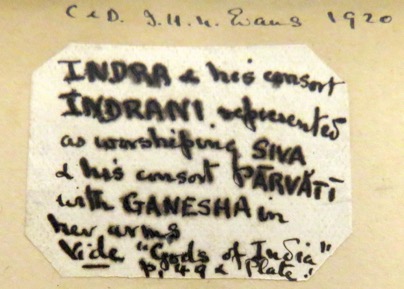 C & D. I.H.N. Evans 1920
INDRA & his consort
INDRANI. represented
as worshiping SIVA
& his consort PĀRVĀTĪ
with GANESHA in
her arms
Vide "Gods of India"
p. 49 & Plate.